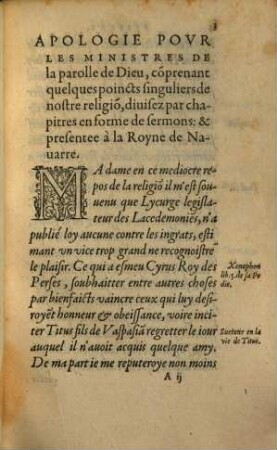 3
APOLOGIE POVR
LES MINISTRES DE
la parolle de Dieu, cõprenant
quelques poincts singuliers de
nostre religiõ, diuisez par cha-
pitres en forme de sermons: &
presentee à la Royne de Na-
uarre.
MA dame en ce mediocre re-
pos de la religiõ il m'est sou-
uenu que Lycurge legisla-
teur des Lacedemoniẽs, n'a
publié loy aucune contre les ingrats, esti
mant vn vice trop grand ne recognoistre
le plaisir. Ce qui a esmeu Cyrus Roy des
Perses, soubhaitter entre autres choses
par bienfaicts vaincre ceux qui luy desi-
royẽt honneur & obeissance, voire inci-
ter Titus fils de Vaspasiã regretter le iour
auquel il n'auoit acquis quelque amy.
De ma part ie me reputeroye non moins
Xenophon
lib. 5. de sa Pe
die.
Suetone en la
vie de Titus.
A ij